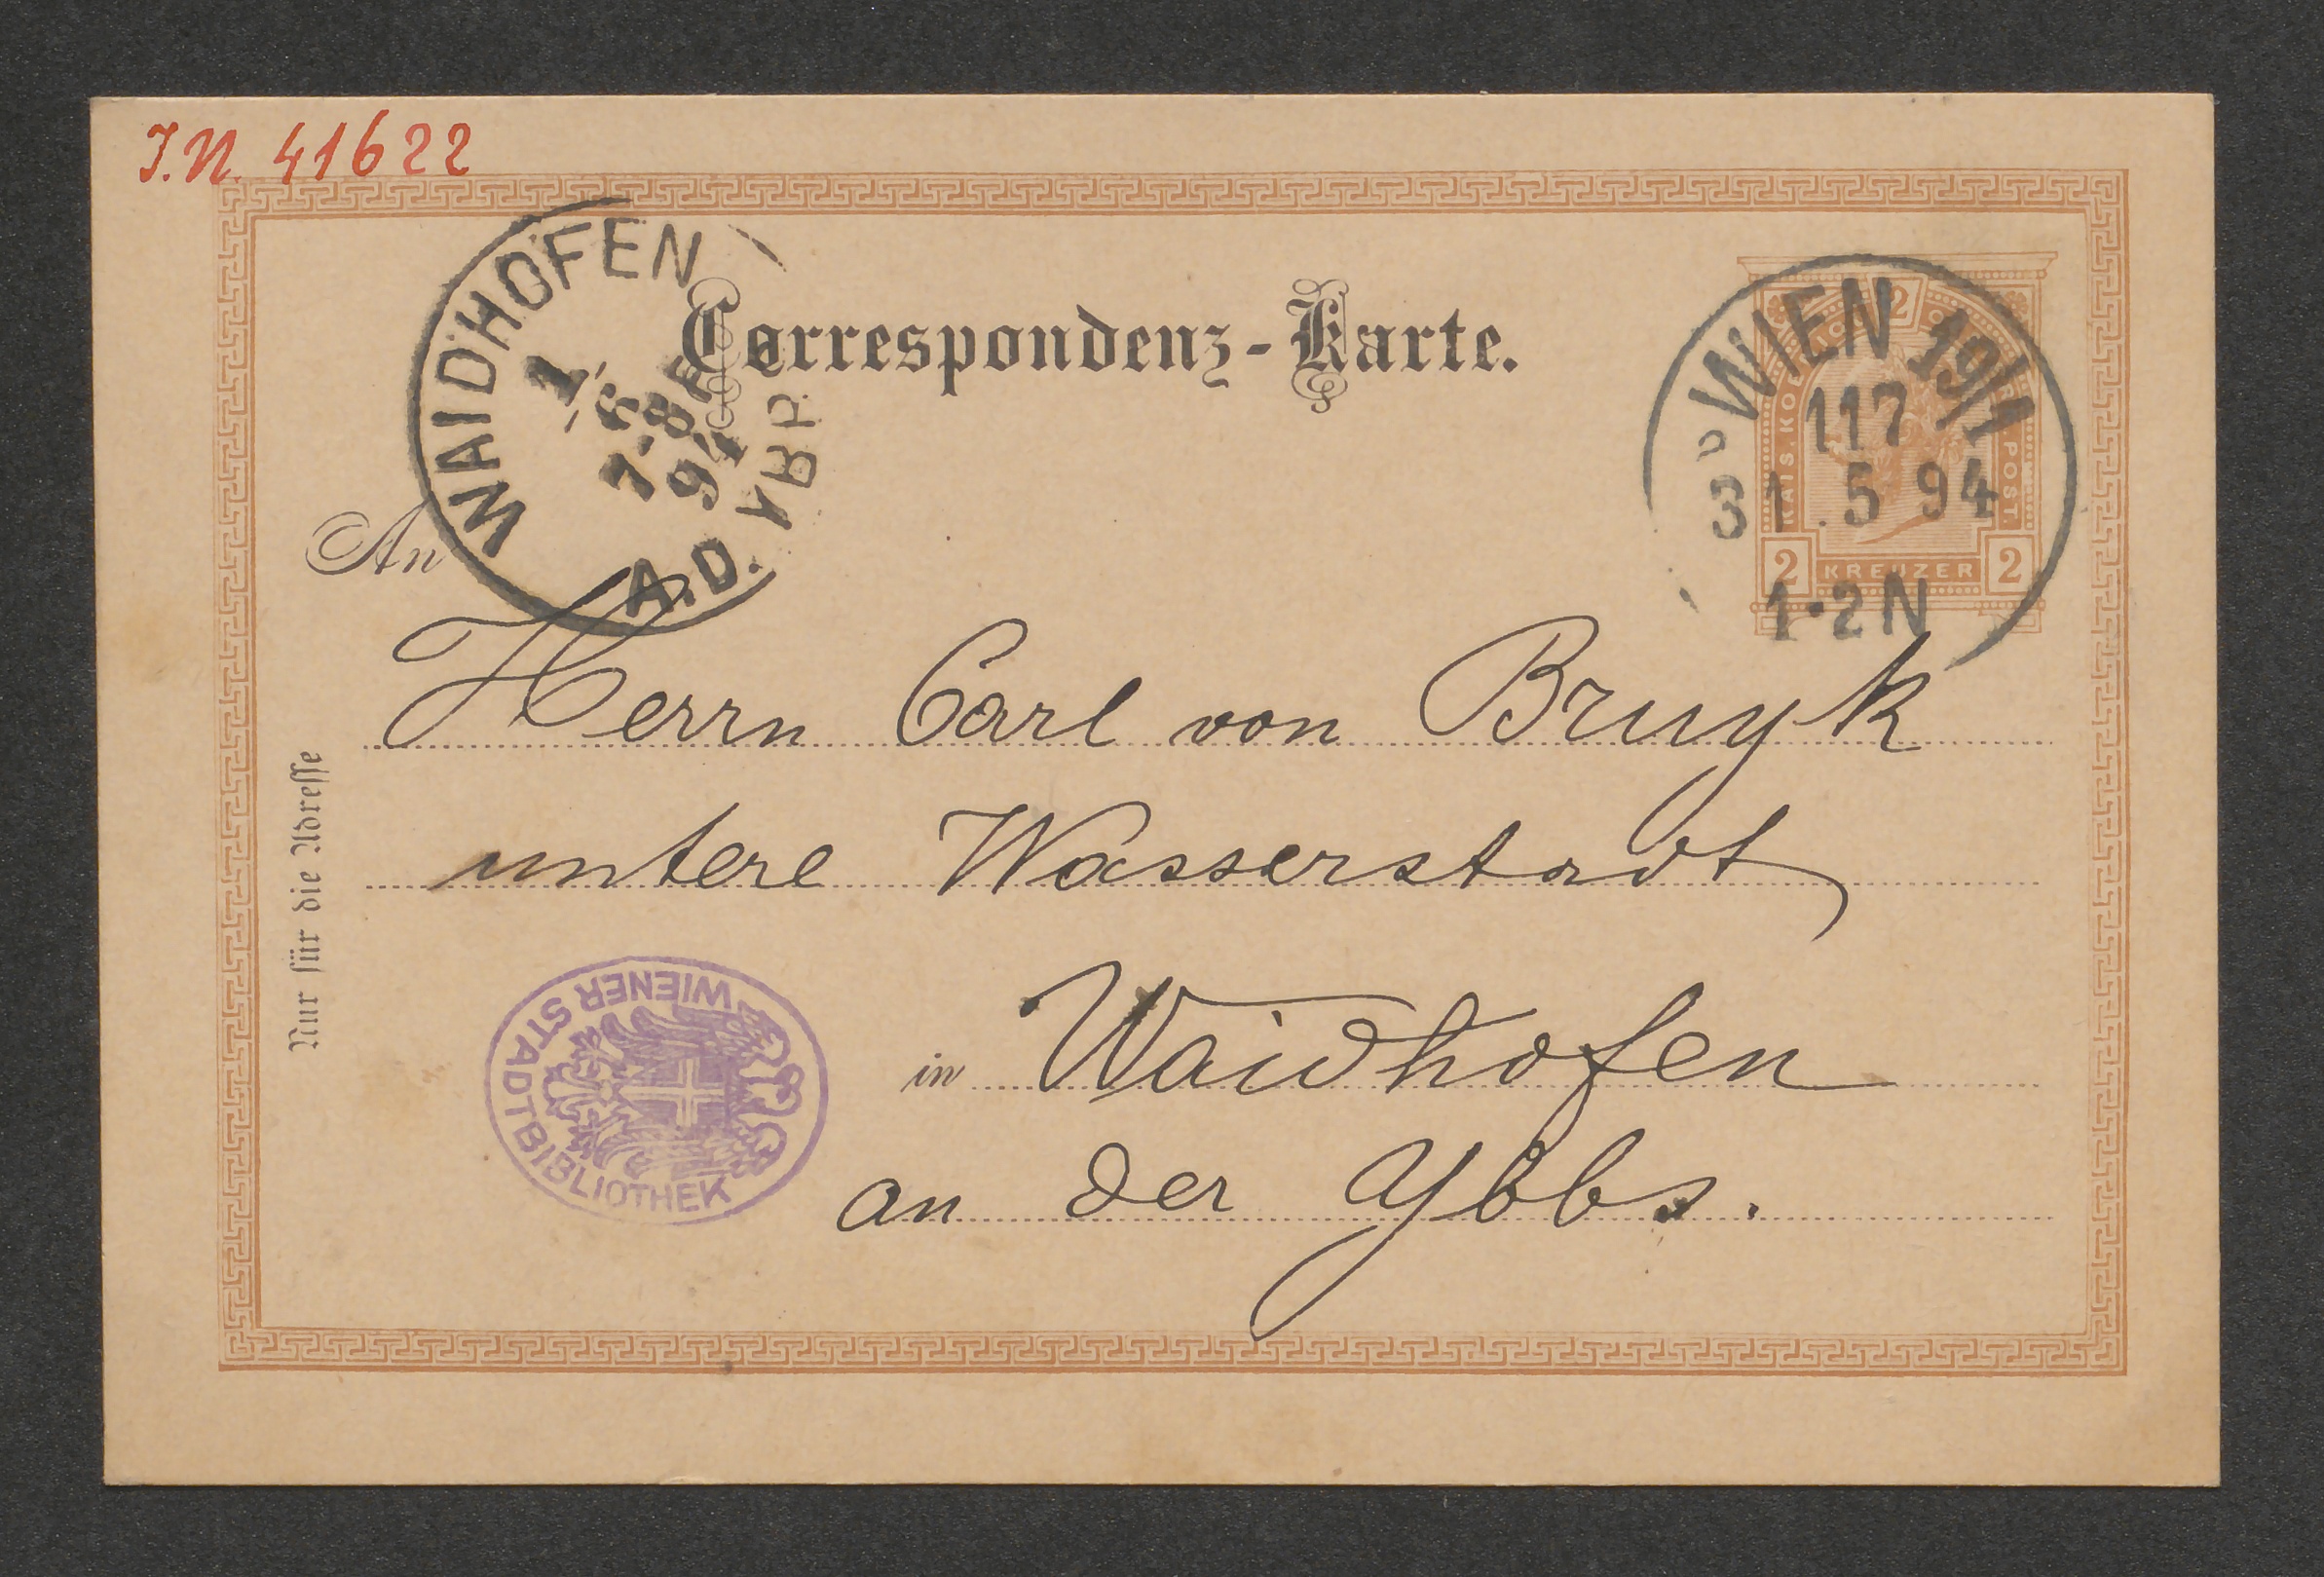 I.N. 41622
WAIDHOFEN
A.D. YBB
1
5
7-8
94
Correspondenz-Karte.
WIEN 19/1
117
1 5 94
1·2N
2
KAIS. KOE
POST
2 KREUZER 2
An
Herrn Carl von Bruyk
untere Wasserstadt
in Waidhofen
an der Ybbs.
Nur für die Adresse
WIENER STADTBIBLIOTHEK